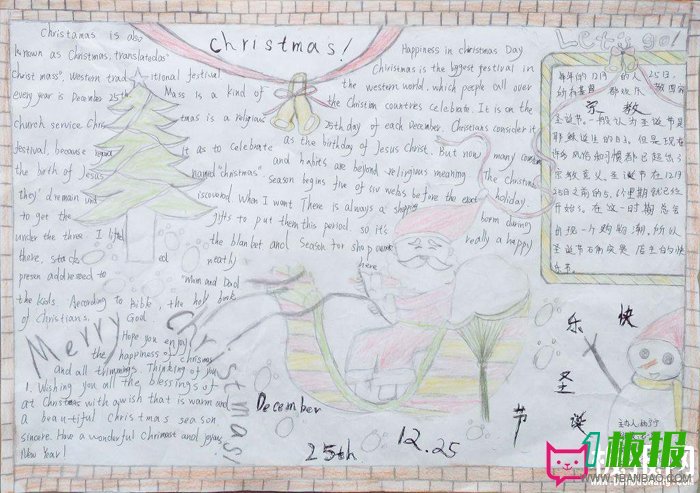 Christmas!
Christamas is also
known as Christmas, translatedas
Christ mass". Western traditional festival
every year is December 25th Mass is a kind of
church service Christmas is a religious
festival, because regard it as to celebrate
the birth of Jesus named "christmas"
to get the gifts to put them
under the three. I lifted the blanbet and
there, stacked neatly
presen addressed to "Mum and Dad
the kids. According to Bible, the holy book
of Christians. God
Happiness in christmas Day
Christmas is the biggest festival in
the western world, which people all over
the Christian countries celebrate. It is on the
25th day of each December. Christians consider it
as the birthday of Jesus Christ. But now many customs
and habits are beyond religious meaning The Christmas
season begins five or six webs before the exact holiday.
There is always a shopping
this period, so it's
Season for shop
really a happy
here
Hope you enjoy
the happiness of chrismas
and all trimmings. Thinking of you
1. Wishing you all the blessings of
at Christmas with a wish that is warm and
a beautiful Christmas season
sincere. Have a wonderful Chrimast and joyous
New Year!
Merry
Christmas!
December
25th
12.25
Let's go!
宗教
圣诞节。一般认为圣诞节是
耶稣诞生的日子。但是现在
许多风俗和习惯都已超出了
宗教意义。圣诞节在12月
25日之前的5、6个星期就已经
开始了。在这一时期总会
出现一个购物潮,所以
圣诞节
快
乐
圣
诞
节
1板报
WWW.1BANBAO.COM